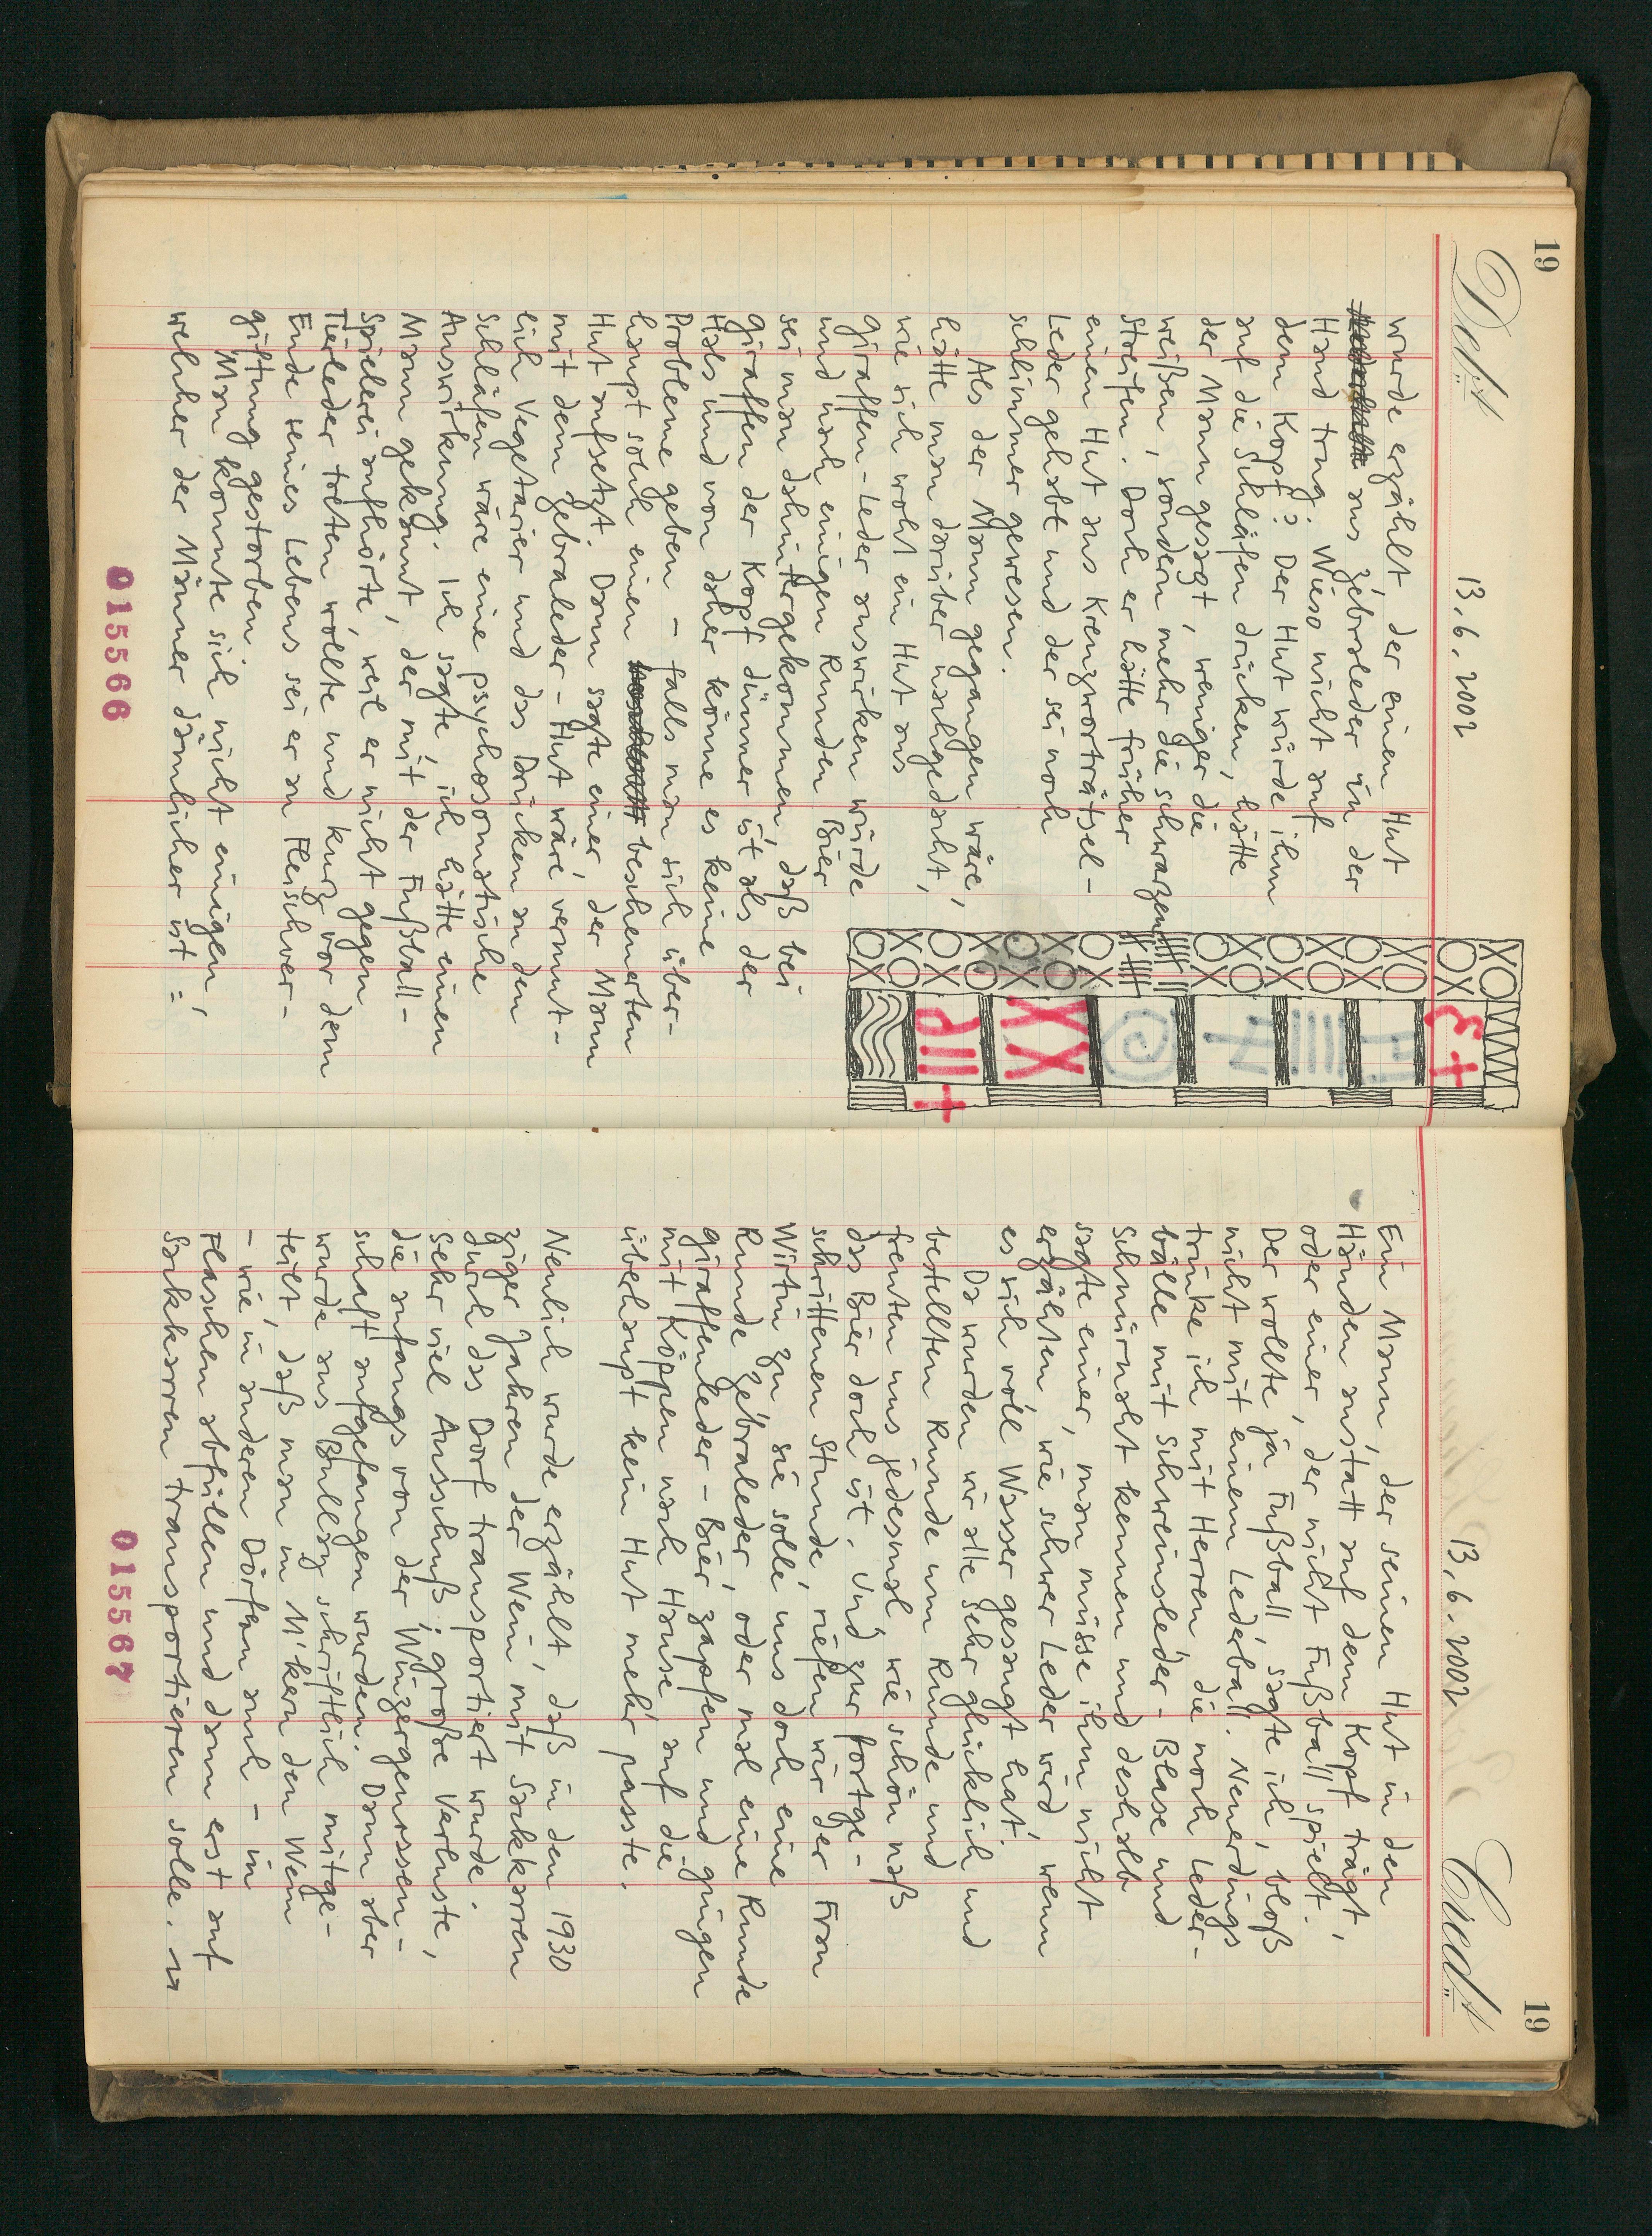 19
Debit
13.6.2002
wurde erzählt, der einen Hut
aus Zebraleder in der
Hand trug. Wieso nicht auf
dem Kopf? Der Hut würde ihm
auf die Schläfen drücken, hätte
der Mann gesagt, weniger die
weißen, sondern mehr die schwarzen
Streifen. Doch er hätte früher
einen Hut aus Kreuzworträtsel-
Leder gehabt und der sei noch
schlimmer gewesen.
Als der Mann gegangen wäre,
hätte man darüber nachgedacht,
wie sich wohl ein Hut aus
Giraffen-Leder auswirken würde
und nach einigen Runden Bier
sei man dahintergekommen, daß bei
Giraffen der Kopf dünner ist als der
Hals und von daher könne es keine
Probleme geben – falls man sich über-
haupt solch einen bescheuerten
Hut aufsetzt. Dann sagte einer, der Mann
mit dem Zebraleder-Hut wäre vermut-
lich Vegetarier und das Drücken an den
Schläfen wäre eine psychosomatische
Auswirkung. Ich sagte, ich hätte einen
Mann gekannt, der mit der Fußball-
Spielerei aufhörte, weil er nicht gegen
Tierleder treten wollte und kurz vor dem
Ende seines Lebens sei er an Fleischver-
giftung gestorben.
Man konnte sich nicht einigen,
welcher der Männer dämlicher ist:
015566
XOXOXO
19
Credit
13.6.2002
Ein Mann, der seinen Hut in den
Händen anstatt auf dem Kopf trägt,
oder einer, der nicht Fußball spielt.
Der wollte ja Fußball, sagte ich, bloß
nicht mit einem Lederball. Neuerdings
trinke ich mit Herren, die noch Leder-
bälle mit Schweinsleder-Blase und
Schnürnaht kennen und deshalb
sagte einer, man müsse ihm nicht
erzählen, wie schwer Leder wird, wenn
es sich voll Wasser gesaugt hat.
Da wurden wir alle sehr glücklich und
bestellten Runde um Runde und
freuten uns jedesmal, wie schön naß
das Bier doch ist. Und zur fortge-
schrittenen Stunde riefen wir der Frau
Wirtin zu, sie solle uns doch eine
Runde Zebraleder, oder mal eine Runde
Giraffenleder-Bier zapfen und gingen
mit Köppen nach Hause, auf die
überhaupt kein Hut mehr passte.
Neulich wurde erzählt, daß in den 1930
ziger Jahren der Wein mit Sackkarren
durch das Dorf transportiert wurde.
Sehr viel Ausschuß; große Verluste,
die anfangs von der Winzergenossen-
schaft aufgefangen wurden. Dann aber
wurde aus Bullay schriftlich mitge-
teilt, daß man in M'kern den Wein
– wie in anderen Dörfern auch – in
Flaschen abfüllen und dann erst auf
Sackkarren transportieren solle.
015567